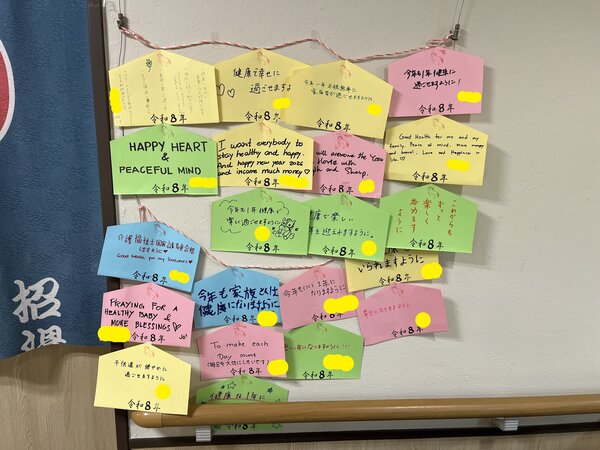 令和8年
健康で幸せに
過ごせますよ
令和8年
今年一年
過ごせますように
令和8年
今年も1年健康に
過ごせますように!
令和8年
HAPPY HEART
&
PEACEFUL MIND
令和8年
I want everybody to
stay healthy and happy.
And happy new year 2026
and income much money♡
令和8年
will overcome the Year
Horse with
and Sharp.
令和8年
Good Health for me and my
family. Peace of mind. More money
and travel. Love and Happiness in
life ♡
令和8年
今年も1年健康で
楽しい過ごせますように
令和8年
康で楽しい
年を迎えれますように。
令和8年
これからも
ずっと
楽しく
呑めます
ように
令和8年
介護福祉士国家試験合格
しますように♡
Good health for my loveones♡
令和8年
いられますように
令和8年
PRAYING FOR A
HEALTHY BABY &
MORE BLESSINGS♡
令和8年
今年も家族とも
健康になりますように
令和8年
今年もいい1年に
なりますように
令和8年
令和8年
To make each
Day count
(毎日を大切にしたいです)
令和8年
一年になりますように!!
令和8年
子供達が健やかに
過ごせますように
令和8年
健康な1年に
招